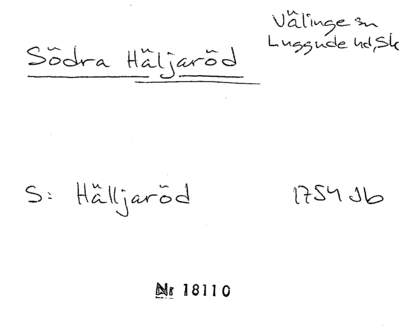 Välinge sn
Södra Häljaröd
Luggude hd, Sk
S: Hälljaröd 1754 Jb
Nr 18110